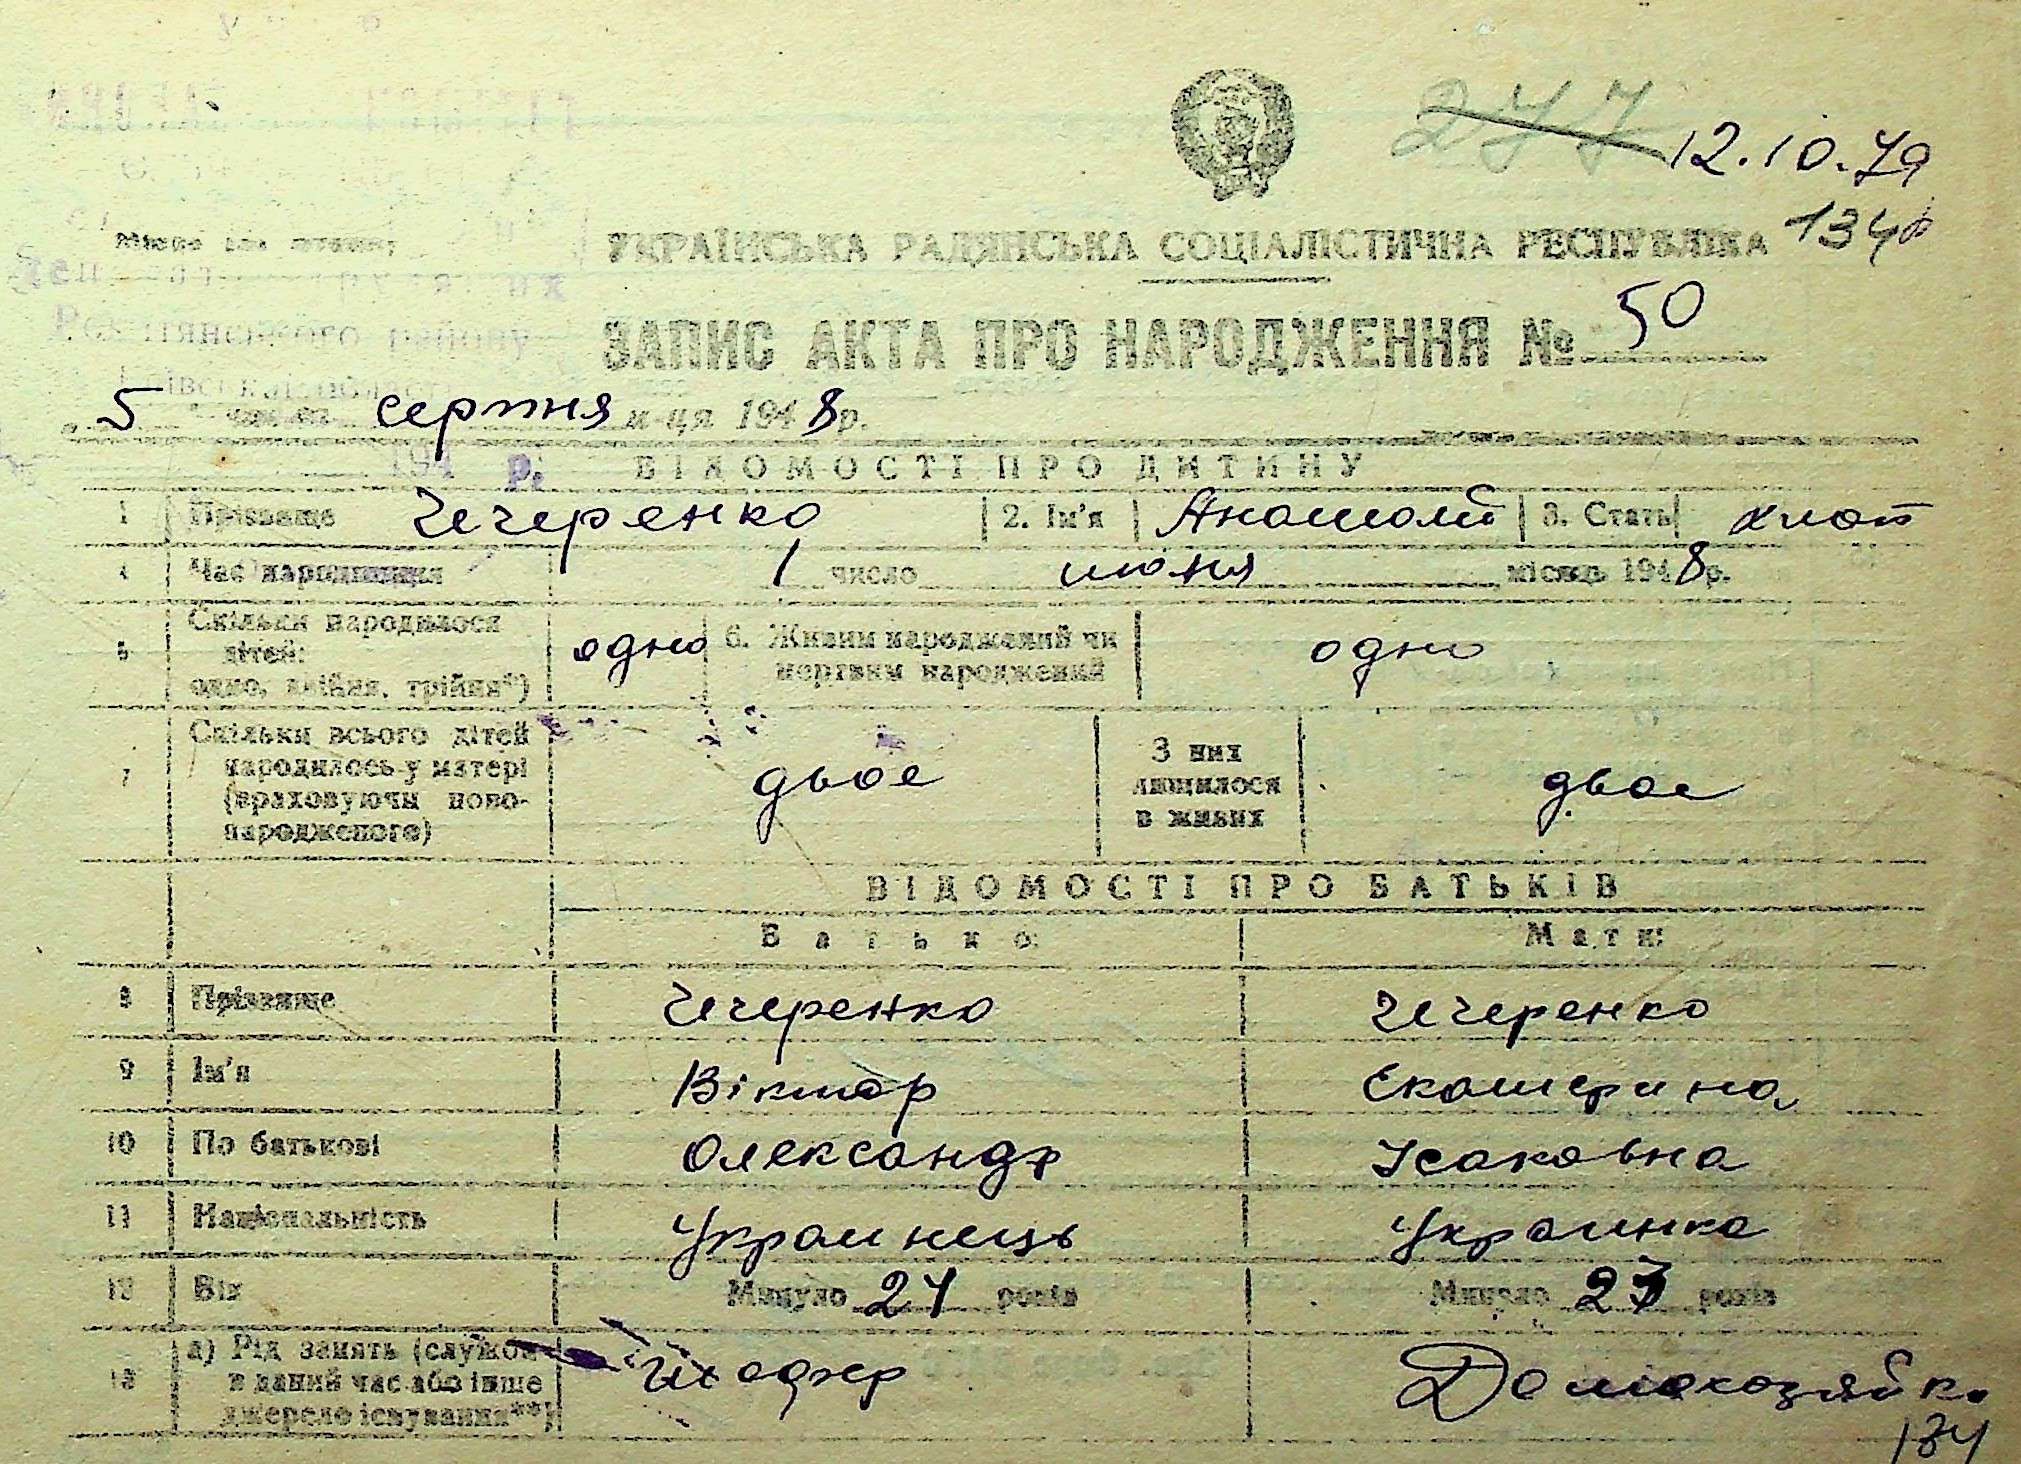 277 12.10.79
134
Місце для штампу
УКРАЇНСЬКА РАДЯНСЬКА СОЦІАЛІСТИЧНА РЕСПУБЛІКА
району
ЗАПИС АКТА ПРО НАРОДЖЕННЯ № 50
5 серпня м-ця 1948 р.
194 р.
ВІДОМОСТІ ПРО ДИТИНУ
1 Прізвище Чечеренко 2. Ім'я Анатолій 3. Стать хлоп
4 Час народження 1 число июня місяць 1948 р.
5 Скільки народилося
дітей:
одне, двійня, трійня*) одно 6. Живим народжений чи
мертвим народжений одно
7 Скільки всього дітей
народилось у матері
(враховуючи ново-
народженого) двое З них
лишилося
в живих двое
ВІДОМОСТІ ПРО БАТЬКІВ
Батько: Мати:
8 Прізвище Чечеренко Чечеренко
9 Ім'я Віктор Екатерина
10 По батькові Олександр Исаковна
11 Національність Украинець Украинка
12 Вік Минуло 21 років Минуло 23 років
13 а) Рід занять (служба
в даний час або інше
джерело існування**)
Домохозяйк.
134